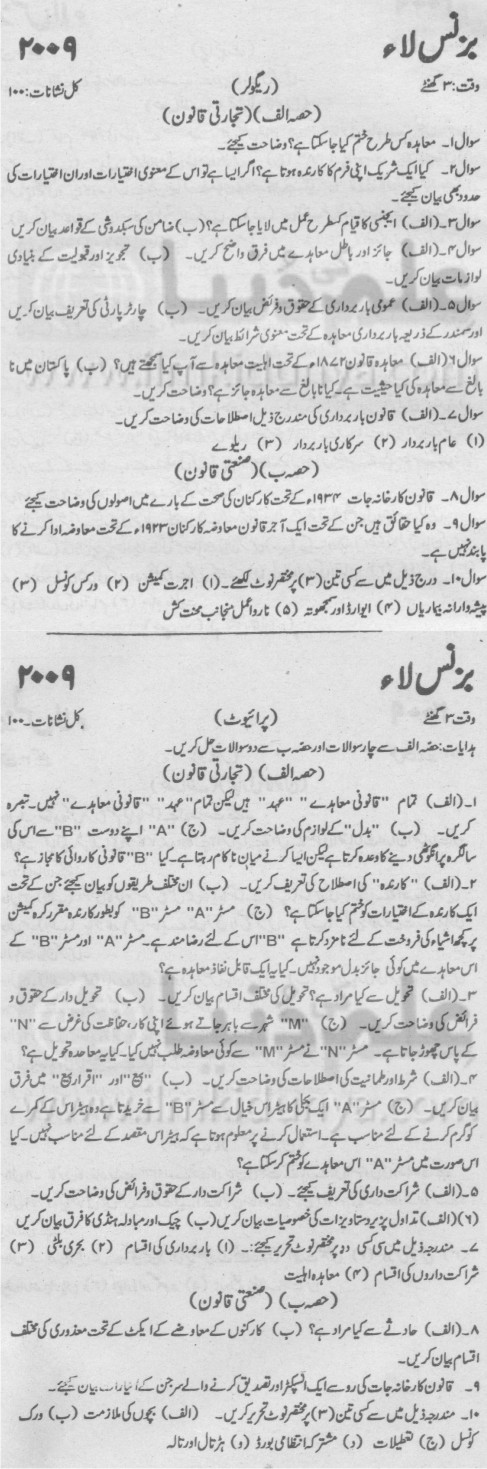 بزنس لاء ۲۰۰۹
وقت: ۳ گھنٹے (ریگولر) کل نشانات: ۱۰۰
(حصہ الف) (تجارتی قانون)
سوال ۱۔ معاہدہ کس طرح ختم کیا جاسکتا ہے؟ وضاحت کیجئے۔
سوال ۲۔ کیا ایک شریک اپنی فرم کا کارندہ ہوتا ہے؟ اگر ایسا ہے تو اس کے معنوی اختیارات اور ان اختیارات کی
حدود بھی بیان کیجئے۔
سوال ۳۔ (الف) ایجنسی کا قیام کسطرح عمل میں لایا جاسکتا ہے؟ (ب) ضامن کی سبکدوشی کے قواعد بیان کریں
سوال ۴۔ (الف) جائز اور باطل معاہدے میں فرق واضح کریں۔ (ب) تجویز اور قبولیت کے بنیادی
لوازمات بیان کریں۔
سوال ۵۔ (الف) عمومی باربرداری کے حقوق و فرائض بیان کریں۔ (ب) چارٹر پارٹی کی تعریف بیان کریں
اور سمندر کے ذریعہ باربرداری معاہدہ کے تحت معنوی شرائط بیان کریں۔
سوال ۶۔ (الف) معاہدہ قانون ۱۸۷۲ء کے تحت اہلیت معاہدہ سے آپ کیا سمجھتے ہیں؟ (ب) پاکستان میں نا
بالغ سے معاہدہ کی کیا حیثیت ہے۔ کیا نابالغ سے معاہدہ جائز ہے؟ وضاحت کریں۔
سوال ۷۔ (الف) قانون باربرداری کی مندرجہ ذیل اصطلاحات کی وضاحت کریں۔
(۱) عام باربردار (۲) سرکاری باربردار (۳) ریلوے
(حصہ ب) (صنعتی قانون)
سوال ۸۔ قانون کارخانہ جات ۱۹۳۴ء کے تحت کارکنان کی صحت کے بارے میں اصولوں کی وضاحت کیجئے
سوال ۹۔ وہ کیا حقائق ہیں جن کے تحت ایک آجر قانون معاوضہ کارکنان ۱۹۲۳ء کے تحت معاوضہ ادا کرنے کا
پابند نہیں ہے۔
سوال ۱۰۔ درج ذیل میں سے کسی تین (۳) پر مختصر نوٹ لکھئے۔ (۱) اجرت کمیشن (۲) ورکس کونسل (۳)
پیشہ دارانہ بیماریاں (۴) ایوارڈ اور سمجھوتہ (۵) ناروا عمل منجانب محنت کش
بزنس لاء ۲۰۰۹
وقت ۳ گھنٹے (پرائیوٹ) کل نشانات۔ ۱۰۰
ہدایات: حصہ الف سے چار سوالات اور حصہ ب سے دو سوالات حل کریں۔
(حصہ الف) (تجارتی قانون)
۱۔ (الف) تمام "قانونی معاہدے" "عہد" ہیں لیکن تمام "عہد" "قانونی معاہدے" نہیں۔ تبصرہ
کریں۔ (ب) "بدل" کے لوازم کی وضاحت کریں۔ (ج) "A" اپنے دوست "B" سے اس کی
سالگرہ پر انگوٹھی دینے کا وعدہ کرتا ہے لیکن ایسا کرنے میں ناکام رہتا ہے۔ کیا "B" قانونی کاروائی کا مجاز ہے؟
۲۔ (الف) "کارندہ" کی اصطلاح کی تعریف کریں۔ (ب) ان مختلف طریقوں کو بیان کیجئے جن کے تحت
ایک کارندہ کے اختیارات کو ختم کیا جاسکتا ہے؟ (ج) مسٹر "A" مسٹر "B" کو بطور کارندہ مقرر کردہ کمیشن
پر کچھ اشیاء کی فروخت کے لئے نامزد کرتا ہے "B" اس کے لئے رضامند ہے۔ مسٹر "A" اور مسٹر "B" کے
اس معاہدے میں کوئی جائز بدل موجود نہیں۔ کیا یہ ایک قابل نفاذ معاہدہ ہے؟
۳۔ (الف) تحویل سے کیا مراد ہے؟ تحویل کی مختلف اقسام بیان کریں۔ (ب) تحویل دار کے حقوق و
فرائض کی وضاحت کریں۔ (ج) "M" شہر سے باہر جاتے ہوئے اپنی کار، حفاظت کی غرض سے "N"
کے پاس چھوڑ جاتا ہے۔ مسٹر "N" نے مسٹر "M" سے کوئی معاوضہ طلب نہیں کیا۔ کیا یہ معاہدہ تحویل ہے؟
۴۔ (الف) شرط اور طمانیت کی اصطلاحات کی وضاحت کریں۔ (ب) "بیع" اور "اقرار بیع" میں فرق
بیان کریں۔ (ج) مسٹر "A" ایک بجلی کا ہیٹر اس خیال سے مسٹر "B" سے خریدتا ہے وہ ہیٹر اس کے کمرے
کو گرم کرنے کے لئے مناسب ہے۔ استعمال کرنے پر معلوم ہوتا ہے کہ ہیٹر اس مقصد کے لئے مناسب نہیں۔ کیا
اس صورت میں مسٹر "A" اس معاہدے کو ختم کرسکتا ہے؟
۵۔ (الف) شراکت داری کی تعریف کیجئے۔ (ب) شراکت دار کے حقوق و فرائض کی وضاحت کریں۔
(۶) (الف) تداول پزیر دستاویزات کی خصوصیات بیان کریں (ب) چیک اور مبادلہ ہنڈی کا فرق بیان کریں
۷۔ مندرجہ ذیل میں سے کسی دو پر مختصر نوٹ تحریر کیجئے:۔ (۱) باربرداری کی اقسام (۲) بحری بلٹی (۳)
شراکت داروں کی اقسام (۴) معاہدہ اہلیت
(حصہ ب) (صنعتی قانون)
۸۔ (الف) حادثے سے کیا مراد ہے؟ (ب) کارکنوں کے معاوضے کے ایکٹ کے تحت معذوری کی مختلف
اقسام بیان کریں۔
۹۔ قانون کارخانہ جات کی روسے ایک انسپکٹر اور تصدیق کرنے والے سرجن کے اختیارات بیان کیجئے۔
۱۰۔ مندرجہ ذیل میں سے کسی تین (۳) پر مختصر نوٹ تحریر کریں۔ (الف) بچوں کی ملازمت (ب) ورک
کونسل (ج) تعطیلات (د) مشترکہ انتظامی بورڈ (و) ہڑتال اور تالہ